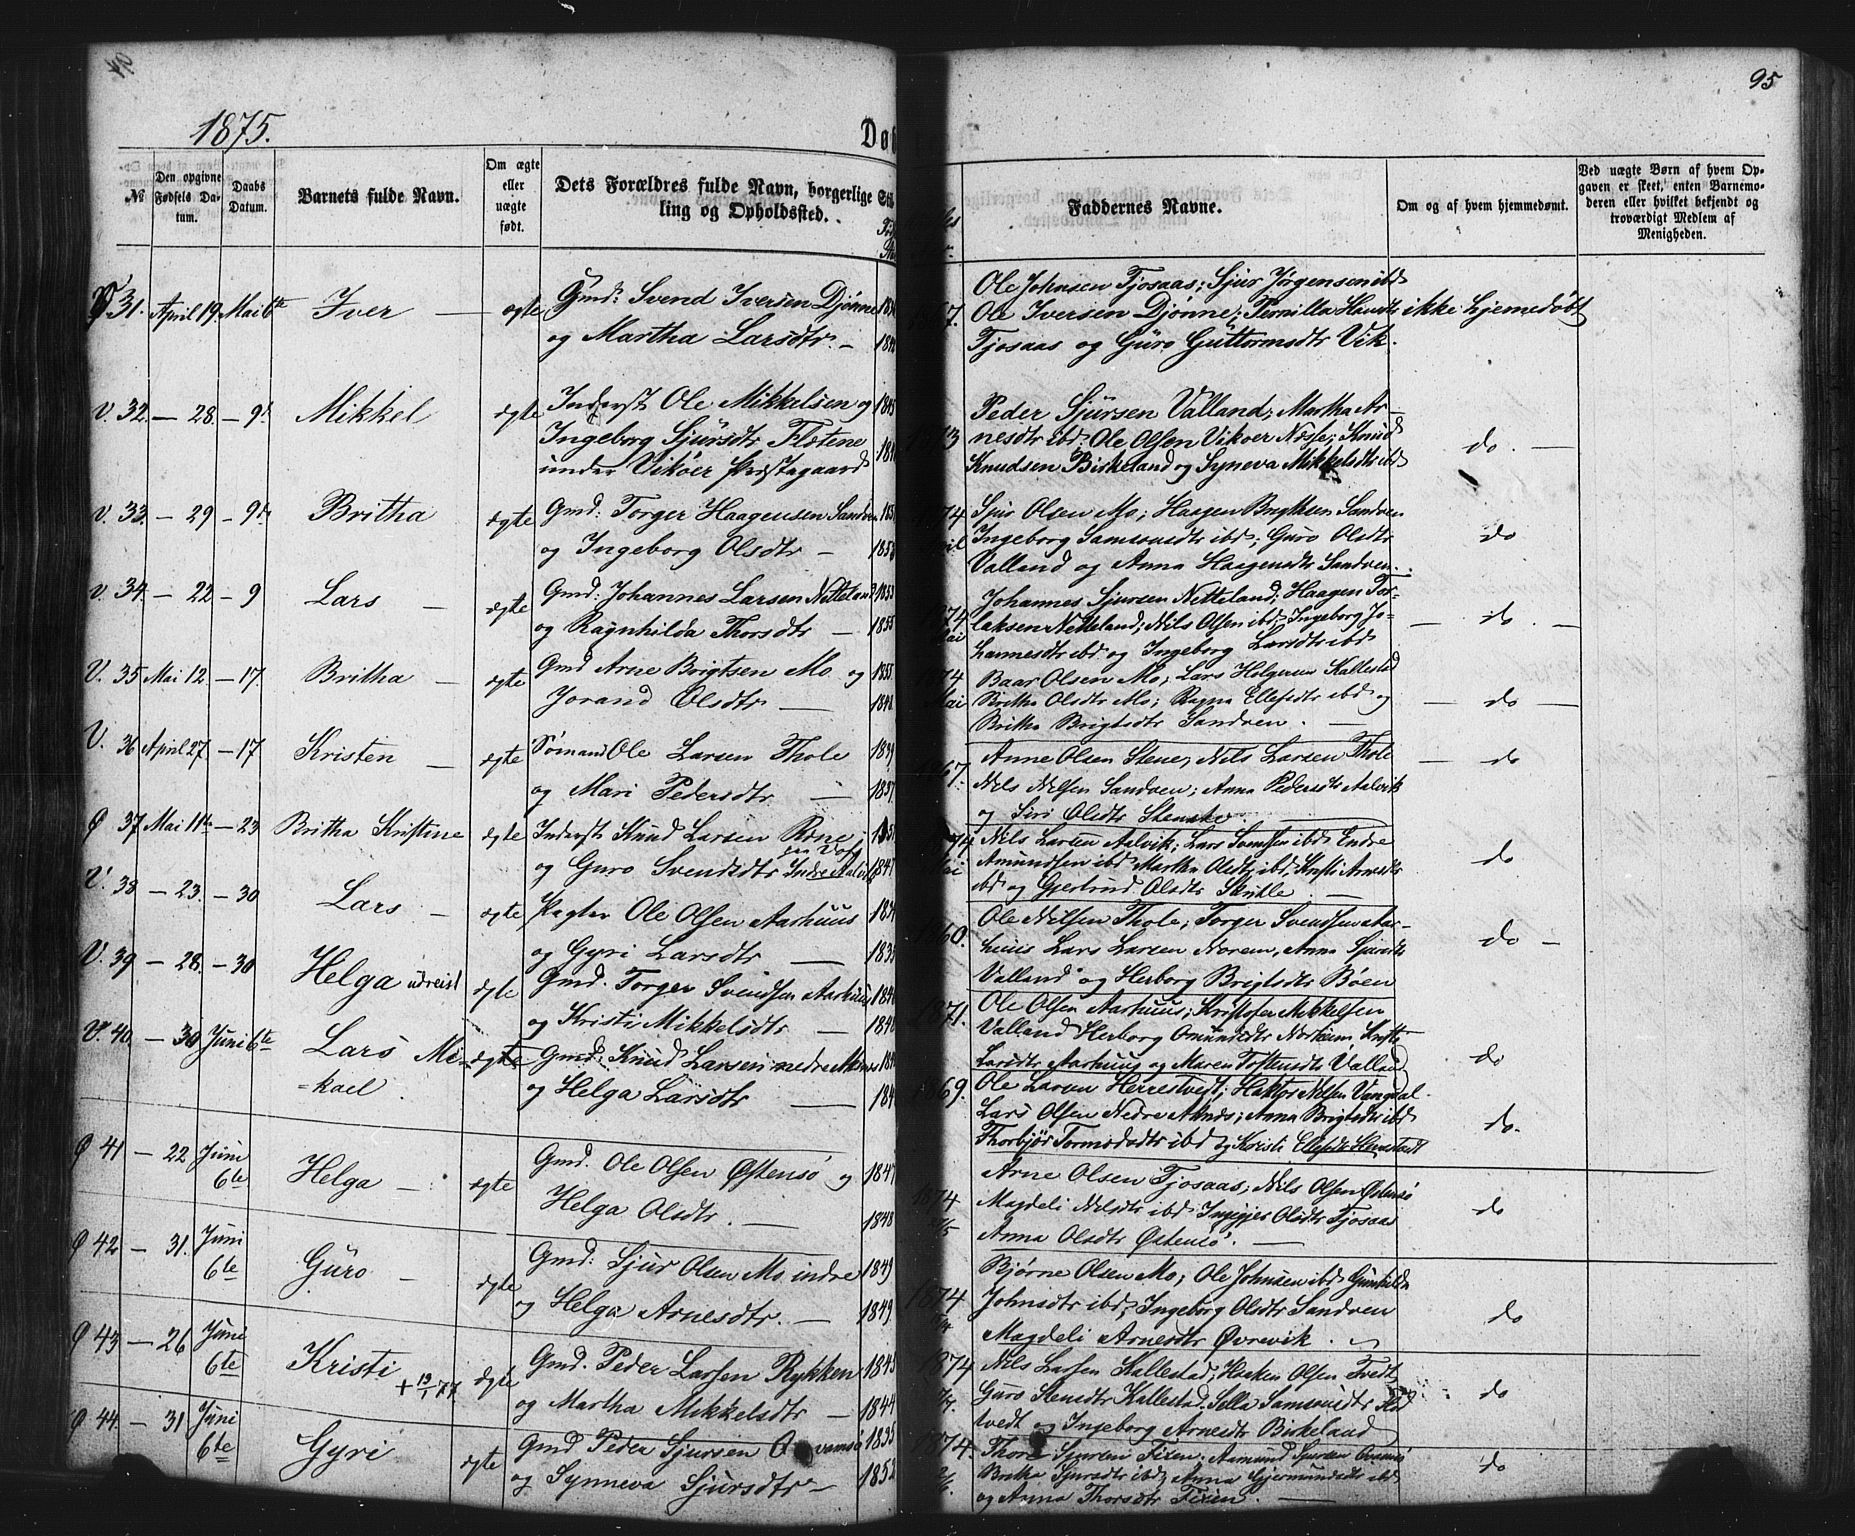 1875.
Dø
95
№
Den opgivne Fødsels Da-
tum.
Daabs
Datum.
Barnets fulde Navn.
Om ægte
eller
uægte
født.
Dets Forældres fulde Navn, borgerlige Stil-
ling og Opholdssted.
Faddernes Navne.
Om og af hvem hjemmedøbt.
Ved uægte Børn af hvem Op-
gaven er skeet, enten Barnemo-
deren eller hvilket bekjendt og
troværdigt Medlem af
Menigheden.
Ø 31. April 19. Mai 6te Iver — ægte Gmd: Svend Iversen Djønne
og Martha Larsdtr. —
1867. Ole Johnsen Tjosaas; Sjur Jørgensen ibd
Ole Iversen Djønne; Pernilla Hansdtr
Tjosaas og Guro Guttormsdtr Vik. ikke hjemedøbt
V. 32. — 28. — 9d. Mikkel ægte Inderst Ole Mikkelsen og 1845
Ingeborg Sjursdtr Flotene
under Vikøer Præstegaard
Peder Sjursen Valland; Martha Ar-
nesdtr ibd: Ole Olsen Vikøer Næse; Knud
Knudsen Birkeland og Syneva Mikkelsdtr ibd do. —
V. 33. — 29 — 9de Britha ægte Gmd: Torger Haagensen Sandven
og Ingeborg Olsdtr —
1874 Sjur Olsen Mo; Haagen Brynhsen Sandven
Ingeborg Samsonsdtr ibd; Guro Olsdtr
Valland og Anna Haagensdtr Sandven. do
V. 34. — 22 — 9 Lars — ægte Gmd: Johannes Larsen Netteland 1853
og Ragnhilda Thorsdtr — 1855
1874 Mai Johannes Sjursen Netteland; Haagen Tor-
laksen Netteland; Nils Olsen ibd: Ingeborg Jo-
hannesdtr ibd og Ingeborg Larsdtr ibd — do. —
V. 35 Mai 12. — 17. Britha — ægte Gmd Arne Brigtsen Mo og 1855.
Jorand Olsdtr — 1848.
1874 Mai Baar Olsen Mo; Lars Helgesen Kallestad
Britha Olsdtr Mo; Ragna Ellefsdtr ibd og
Britha Brigtsdtr Sandven. — — do —
V. 36 April 27 — 17 Kristen — ægte Sømand Ole Larsen Thole 1839
og Mari Pedersdtr — 1837.
1867. Anne Olsen Stene; Nils Larsen Thole
Nils Nilsen Sandven; Anna Pedersdtr Aalvik
og Siri Olsdtr Stensk — do
Ø 37 Mai 11te — 23 Britha Kristine ægte Inderst Knud Larsen Rone
og Guro Svendsdtr Indre Aalvik 1847
1874 Mai Nils Larsen Aalvik; Lars Svendsen ibd Endre
Amundsen ibd Martha Olsdtr ibd, Kristi Arnesdtr
ibd og Gjertrud Olsdtr Skutle — do
V. 38 — 23. — 30 Lars — ægte Pagter Ole Olsen Aarhuus
og Gyri Larsdtr —
1860. Ole Nilsen Thole; Torger Svendsen Aar-
huus Lars Larsen Norem, Anna Sjursdtr
Valland og Herborg Brigtsdtr Bøen do —
V. 39 — 28. — 30 Helga udreist ægte Gmd. Torger Svendsen Aarhuus
og Kristi Mikkelsdtr —
1871. Ole Olsen Aarhuus; Kristofer Mikkelsen
Valland Herborg Omundsdtr Norheim, Kristi
Larsdtr Aarhuus og Maren Tostensdtr Valland do
V. 40. — 30 Juni 6te Lars Mi-
-kael. ægte Gmd: Knud Larsen nedre
og Helga Larsdtr —
1869. Ole Larsen Herrestvedt; Haktor Nilsen Vangdal.
Lars Olsen Nedre; Anna Brigtsdtr ibd
Thorbjør Tormodsdtr ibd og Kristi Ellefsdtr do.
Ø 41 — 22 Juni
6te Helga — ægte Gmd. Ole Olsen Østensø og 1847
Helga Olsdtr. — 1848
1874 Arne Olsen Tjosaas; Nils Olsen Østensø
Magdeli Nilsdtr ibd Ingjer Olsdtr Tjosaas
Anna Olsdtr Østensø. — do
Ø 42 — 31. Juni
6te Guro — ægte Gmd: Sjur Olsen Mo indre 1849
og Helga Arnesdtr. — 1849.
1874 Bjørne Olsen Mo; Ole Johnsen ibd Gunhilda
Johnsdtr ibd; Ingeborg Olsdtr Sandven
Magdeli Arnesdtr Øvrevik. do
Ø 43 — 26 Juni
6te Kristi + 19/1 77 ægte Gmd. Peder Larsen Rykken 1843
og Martha Mikkelsdtr — 1844
1874 Nils Larsen Kallestad; Haaken Olsen Tvedt,
Guro Stensdtr Kallestad. Sella Samsonsdtr
tvedt og Ingeborg Arnesdtr Birkeland do
Ø 44. — 31 Juni
6te Gyri ægte Gmd Peder Sjursen 1835
og Synneva Sjursdtr — 1852
1874. Thore Sjursen Fixen; Aamund Sjursen
Britha Sjursdtr ibd, Anna Gjermundsdtr ibd
og Anna Thorsdtr Fixen. — do